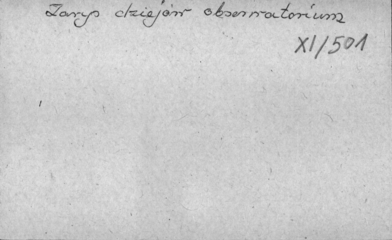 Zarys dziejów obserwatorium
XI/501